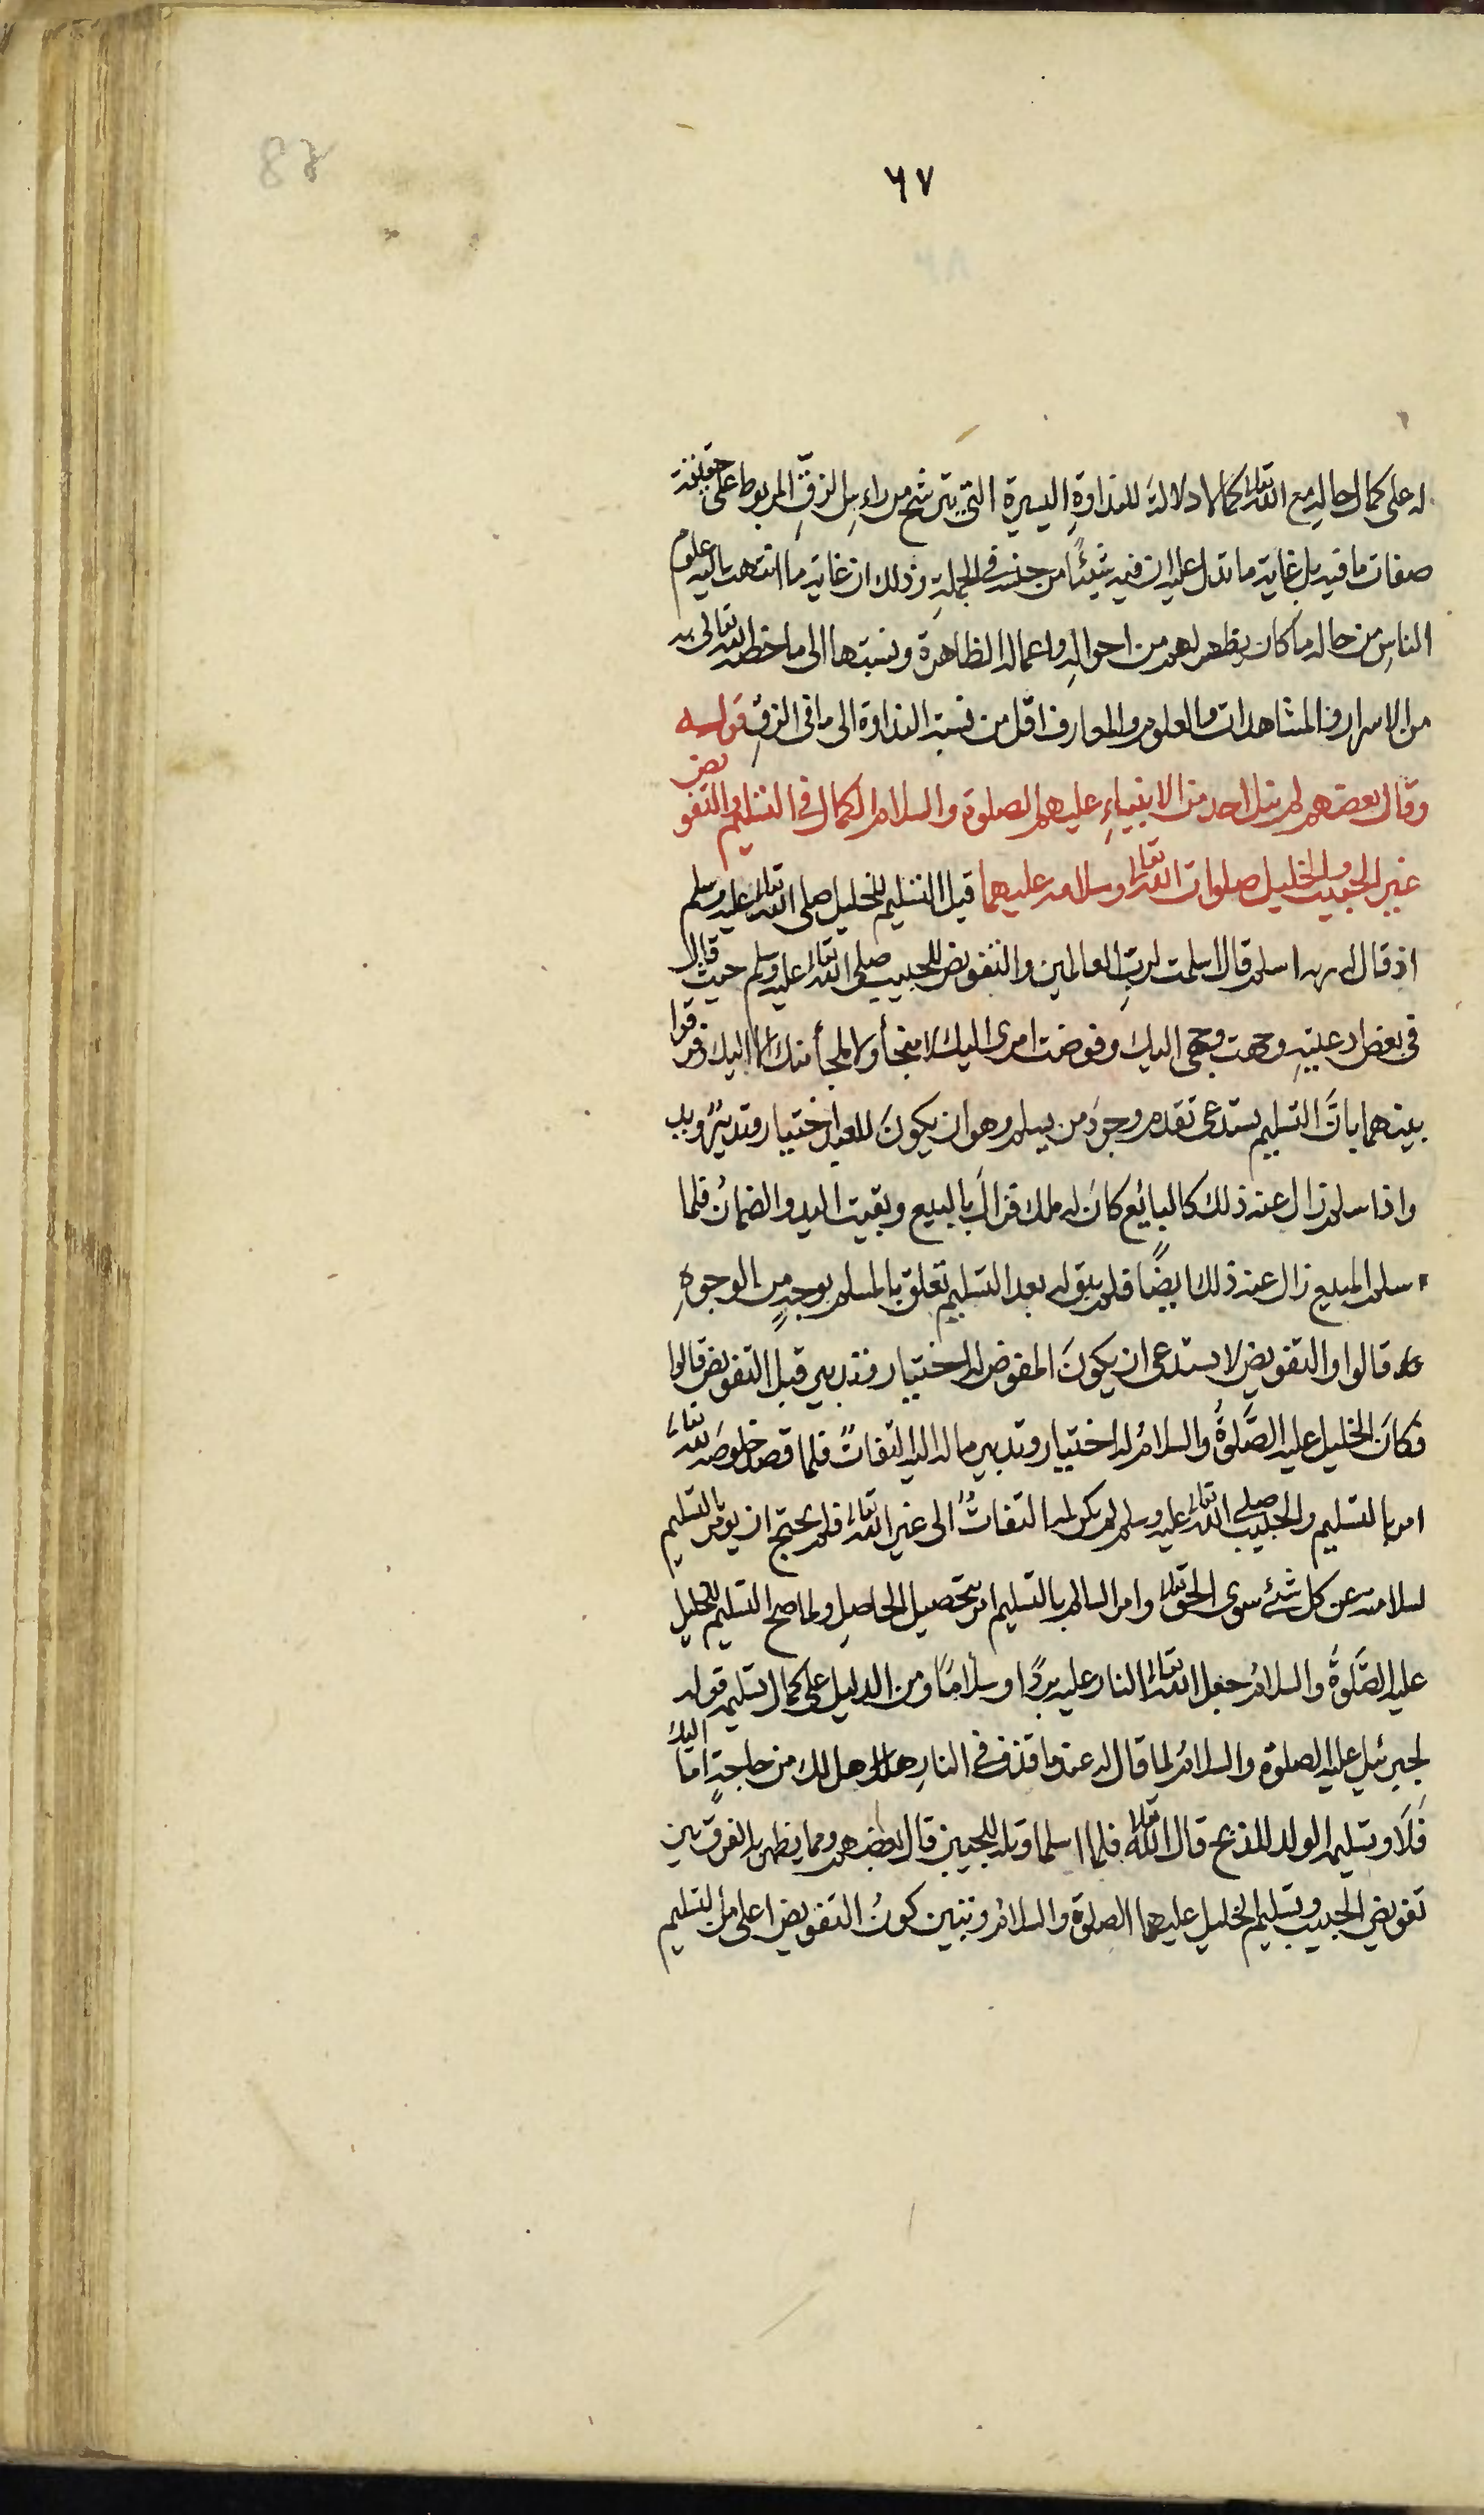 ٦٧
له على كمال حاله مع الله تعالى كما لا دلالة للنداوةِ اليسيرة التي يترشح من راسِ الزقِّ المربوط على حقيقة
صفات ما فيه بل غاية ما تدل عليه ان فيه شيئًا من جنسه في الجملةِ وذلك ان غاية ما انتهت اليه علوم
الناسِ من حاله ما كان يظهر لهم من احوالِه واعماله الظاهرة ونسبتها الى ما خصه الله تعالى به
من الاسرار والمشاهدات والعلوم والمعارف اقل من نسبة النداوة الى ما في الزقِ قوله
وقال بعضهم لم ينل احد من الانبياءِ عليهم الصلوة والسلام الكمال في التسليم والتفويض
غير الحبيب والخليل صلوات الله تعالى وسلامه عليهما قيل التسليم للخليل صلى الله تعالى عليه وسلم
اذ قال له ربه اسلم قال اسلمت لربِ العالمين والتفويض للحبيب صلى الله تعالى عليه وسلم حيث قال
في بعض ادعيتهِ وجهت وجهي اليك وفوضت امري اليك لا منجأ ولا ملجأ منك الا اليك فرقوا
بينهما بانَّ التسليم يستدعى تقدم وجودَ من يسلم وهو ان يكونَ للعبد اختيار وتدبيرٌ
واذا سلم زال عنه ذلك كالبائع كانَ له ملك فزالَ بالبيع وبقيت اليد والضمانُ فلما
سلم المبيع زال عنه ذلك ايضًا فلم يبق له بعد التسليم تعلق بالمسلم بوجهٍ من الوجوهِ
قالوا والتفويض لا يستدعى ان يكونَ المفوض له اختيار وتدبير قبل التفويض قالوا
فكانَ الخليل عليه الصَّلوةُ والسلامُ له اختيار وتدبير ماله اليه التفاتٌ فلما قصد خلوصَه لله تعالى
امر بالتسليم والحبيب صلى الله تعالى عليه وسلم لم يكن له التفاتٌ الى غير الله تعالى فلم يحتج ان يؤمر بالتسليم
لسلامته عن كل شئ سوى الحق تعالى وامر السالم بالتسليم امر بتحصيل الحاصلِ ولما صح التسليم للخليل
عليه الصَّلوةُ والسلامُ جعل الله تعالى النار عليه بردًا وسلامًا ومن الدليل على كمال تسليمه قوله
لجبرئيل عليه الصلوة والسلامُ لما قال له عند ما قذف في النارِ هل لك من حاجةٍ اما اليك
فَلَا وتسليمه الولد للذبح قال الله تعالى فلما اسلما وتله للجبين قال بعضهم ومما يظهر به الفرق بين
تفويض الحبيب وتسليم الخليل عليهما الصلوة والسلامُ وتبين كونُ التفويض اعلى من التسليم